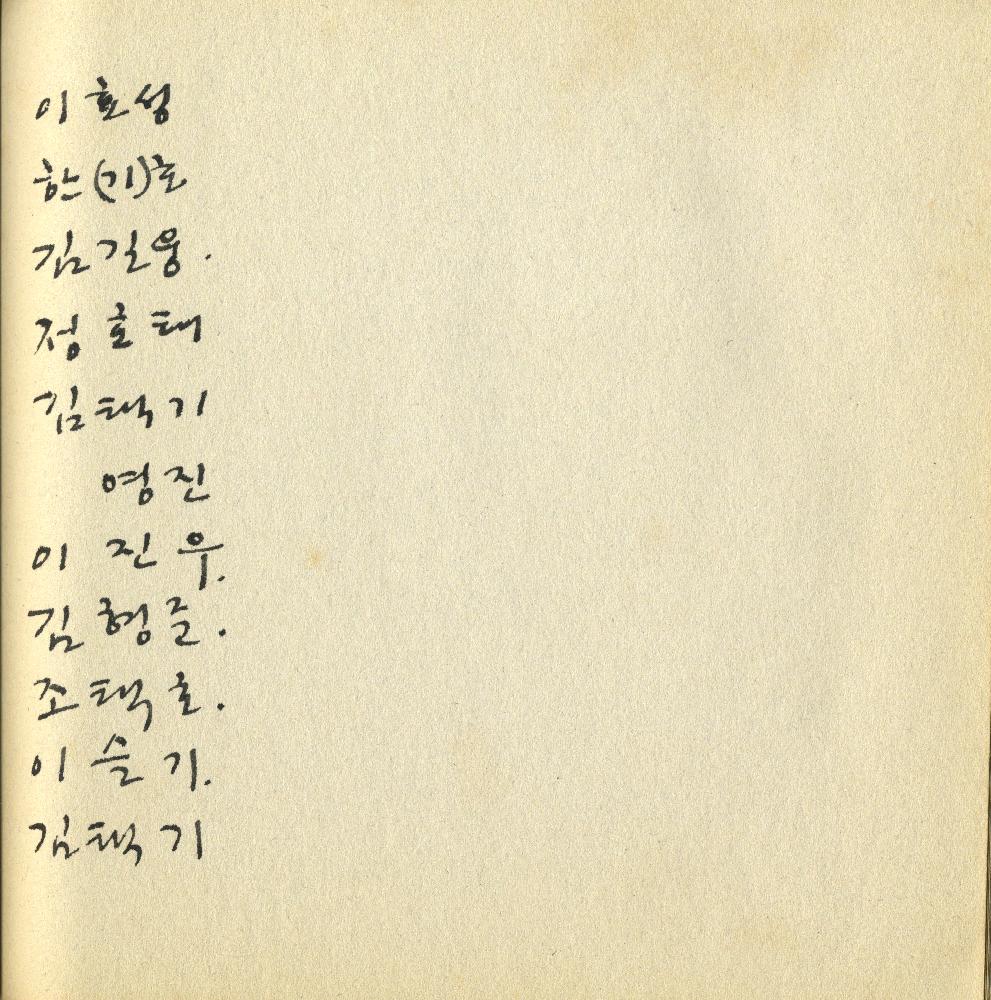 이효성
한(기)호
김길웅.
정호태
김택기
영진
이 진 우.
김 형 준.
조 택 호.
이 슬 기.
김택 기